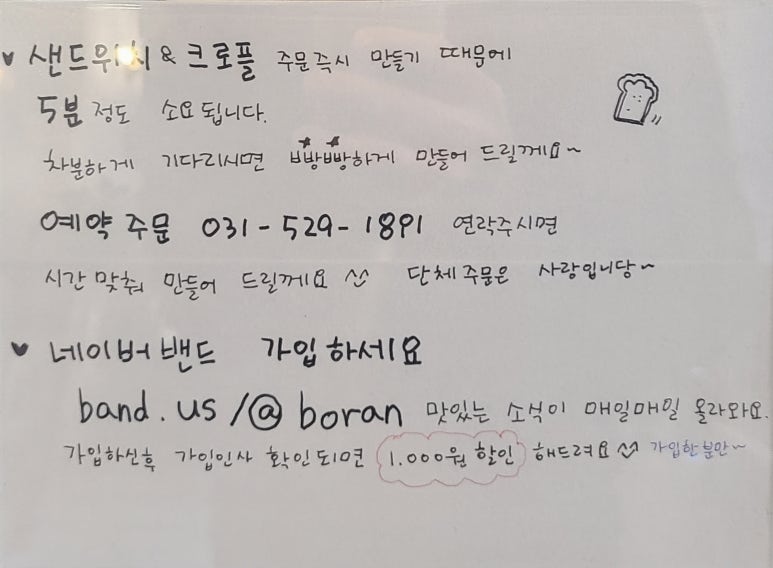 ♥ 샌드위치 & 크로플 주문즉시 만들기 때문에
5분 정도 소요됩니다.
차분하게 기다리시면 빵빵하게 만들어 드릴께요~
예약 주문 031-529-1891 연락주시면
시간 맞춰 만들어 드릴께요 ^^ 단체주문은 사랑입니당~
♥ 네이버 밴드 가입하세요
band.us/@boran 맛있는 소식이 매일매일 올라와요.
가입하신후 가입인사 확인되면 1.000원 할인 해드려요 ^^ 가입한분만~